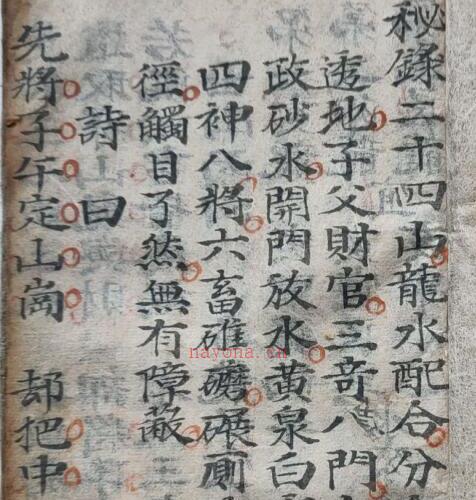 秘錄二十四山龍水配合分
透地子父財官三奇八門
政砂水開門放水黃泉白
四神八將六畜碓磨碾廁
徑觸目了然無有障蔽
詩曰
先將子午定山崗 却把中
nayona.cn